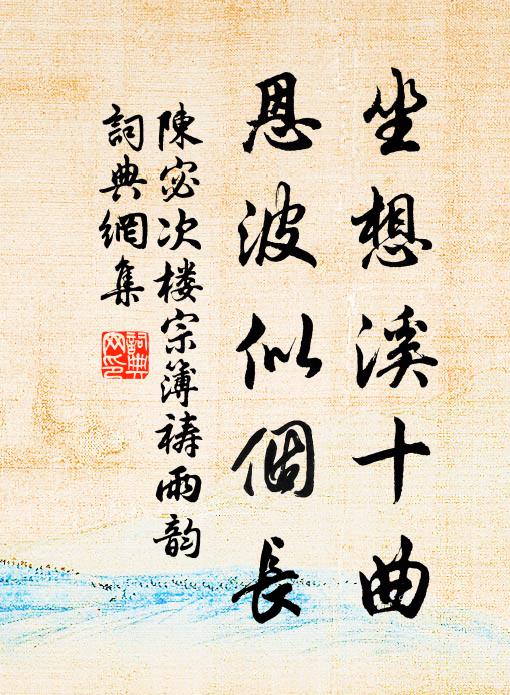 坐想溪十曲
恩波似個長
陳宓次楼宗簿禱雨韵
詞典網集